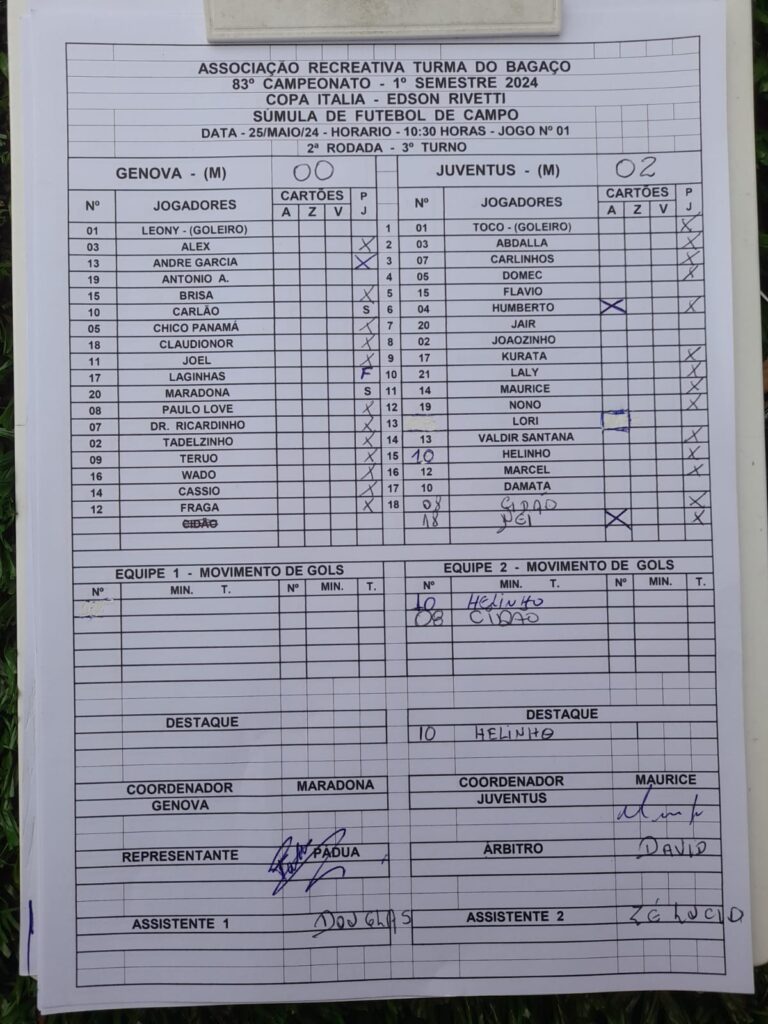 ASSOCIAÇÃO RECREATIVA TURMA DO BAGAÇO
83º CAMPEONATO - 1º SEMESTRE 2024
COPA ITALIA - EDSON RIVETTI
SÚMULA DE FUTEBOL DE CAMPO
DATA - 25/MAIO/24 - HORARIO - 10:30 HORAS - JOGO Nº 01
2ª RODADA - 3º TURNO
GENOVA - (M) 00 JUVENTUS - (M) 02
Nº JOGADORES CARTÕES P J Nº JOGADORES CARTÕES P J
A Z V A Z V
01 LEONY - (GOLEIRO) 1 01 TOCO - (GOLEIRO) X
03 ALEX X 2 03 ABDALLA X
13 ANDRE GARCIA X 3 07 CARLINHOS X
19 ANTONIO A. 4 05 DOMEC X
15 BRISA X 5 15 FLAVIO
10 CARLÃO S 6 04 HUMBERTO X X
05 CHICO PANAMÁ X 7 20 JAIR
18 CLAUDIONOR X 8 02 JOAOZINHO
11 JOEL X 9 17 KURATA X
17 LAGINHAS F 10 21 LALY X
20 MARADONA S 11 14 MAURICE X
08 PAULO LOVE X 12 19 NONO X
07 DR. RICARDINHO X 13 LORI
02 TADELZINHO X 14 13 VALDIR SANTANA X
09 TERUO X 15 10 HELINHO X
16 WADO X 16 12 MARCEL X
14 CASSIO X 17 10 DAMATA
12 FRAGA X 18 08 CIDÃO X
CIDÃO 18 NEI X X
EQUIPE 1 - MOVIMENTO DE GOLS EQUIPE 2 - MOVIMENTO DE GOLS
Nº MIN. T. Nº MIN. T. Nº MIN. T. Nº MIN. T.
10 HELINHO
08 CIDÃO
DESTAQUE DESTAQUE
10 HELINHO
COORDENADOR MARADONA COORDENADOR MAURICE
GENOVA JUVENTUS
REPRESENTANTE PADUA ÁRBITRO DAVID
ASSISTENTE 1 DOUGLAS ASSISTENTE 2 ZÉ LUCIO